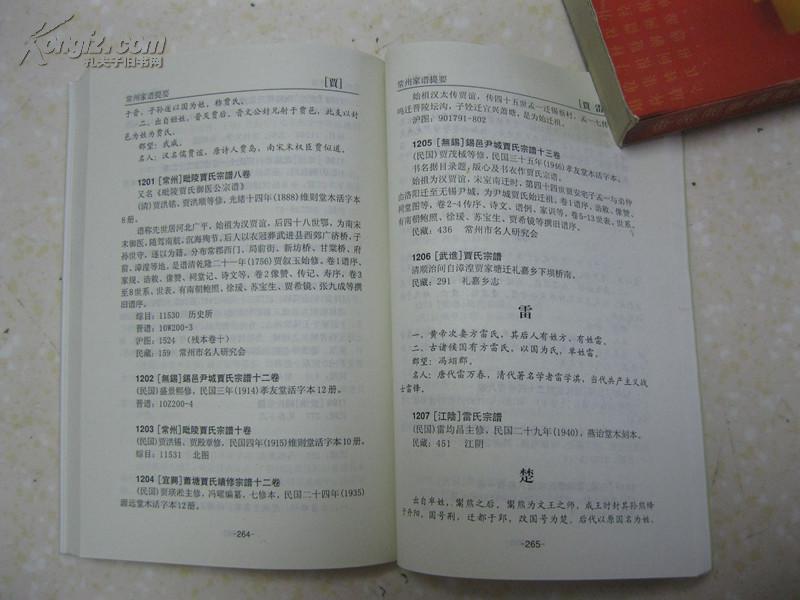 Kongfz.com
孔夫子旧书网
常州家谱提要
[賈]
于晋，子孙遂以国为姓，称贾氏。
二、出自姬姓，晋灭贾后，晋文公封兄射于贾邑，此支以封
邑为姓为贾氏。
郡望：武威。
名人：汉名儒贾谊，唐诗人贾岛，南宋末权臣贾似道。
1201 [常州]毗陵賈氏宗譜八卷
又名《毗陵贾氏御医公宗谱》
(清)贾洪洪、贾洪顺等修，光绪十四年(1888)维则堂活字本
8册。
谱称先世居河北广平，始祖为汉贾谊，后四十八世鄂，为南宋
末御医，随驾南航，沉海殉节。后人以衣冠葬武进县西郊广济桥，子
孙世守，遂以为籍。分布常郡西门、局前街、新坊桥、甘棠桥、府
前、漳湟等地，是谱清乾隆二十一年(1756)贾叙玉始修。卷1谱序、
家规、诰敕、像赞、祠堂记、诗文等，卷2像赞、传记、寿序，卷3
至8世系、世表。有南朝鲍照、徐瑗、苏宝生、贾希镜、张九成等撰
旧谱序。
综目：11530 历史所
普谱：10W200-3
沪图：1524 (残本卷十)
民藏：159 常州市名人研究会
1202 [無錫]錫邑尹城賈氏宗譜十二卷
(民国)盛景熙修，民国三年(1914)孝友堂活字本12册。
普谱：10Z200-4
1203 [常州]毗陵賈氏宗譜十卷
(民国)贾洪锡、贾殿章修，民国四年(1915)维则堂活字本10册。
综目：11531 北图
1204 [宜興]蕭塘賈氏續修宗譜十二卷
(民国)贾瑛淞主修，冯曜编纂，七修本，民国二十四年(1935)
源远堂木活字本12册。
-264-
常州家谱提要
[賈 雷
始祖汉太传贾谊，传四十五世孟一迁锡蔡村，孟一七传
鸣迁晋陵坛沟，子铨迁宜兴萧塘，是为始迁祖。
沪图：901791-802
1205 [無錫]錫邑尹城賈氏宗譜十三卷
(民国)贾茂棫等修，民国三十五年(1946)孝友堂活字本。
书名据目录题，版心及书衣作贾氏宗谱。
始祖为汉贾谊，宋室南迁时，第四十四世贾安宅子孟一与弟仲
由洛阳迁至无锡尹城，为尹城贾氏始迁祖。卷1谱序、诰敕、像赞、
祠堂图等，卷2-4传序、诗文、谱例、家训等，卷5-13世表、世系。
有南朝鲍照、徐瑗、苏宝生、贾希镜等撰旧谱序。
民藏：436 常州市名人研究会
1206 [武進]賈氏宗譜
清顺治间自漳湟贾家塘迁礼嘉乡下坝桥南。
民藏：291 礼嘉乡志
雷
一、黄帝次妻方雷氏，其后人有姓方、有姓雷。
二、古诸侯国有方雷氏，以国为氏，单姓雷。
郡望：冯翊郡。
名人：唐代雷万春，清代著名学者雷学淇，当代共产主义战
士雷锋。
1207 [江陰]雷氏宗譜
(民国)雷均昌主修，民国二十九年(1940)，燕诒堂木刻本。
民藏：451 江阴
楚
出自芈姓，鬻熊之后，鬻熊为文王之师，成王时封其孙熊绎
于丹阳，国号荆，迁都于郢，改国号为楚。后代以原国名为姓。
-265-